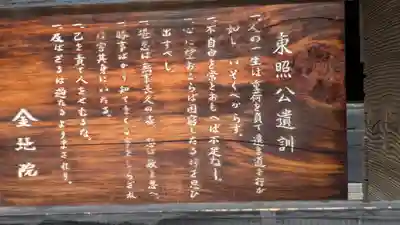 東照公遺訓
一、人の一生は重荷を負て遠き道を行が
如し いそぐべからず。
一、不自由を常とおもへば不足なし。
一、心に望おこらば困窮したる時を思ひ
出すべし。
一、堪忍は無事長久の基 怒は敵と思へ
一、勝事ばかり知てまくる事をしらざれば
害其身にいたる。
一、己を責て人をせむるな。
一、及ばざるは過たるよりまされり。
金地院